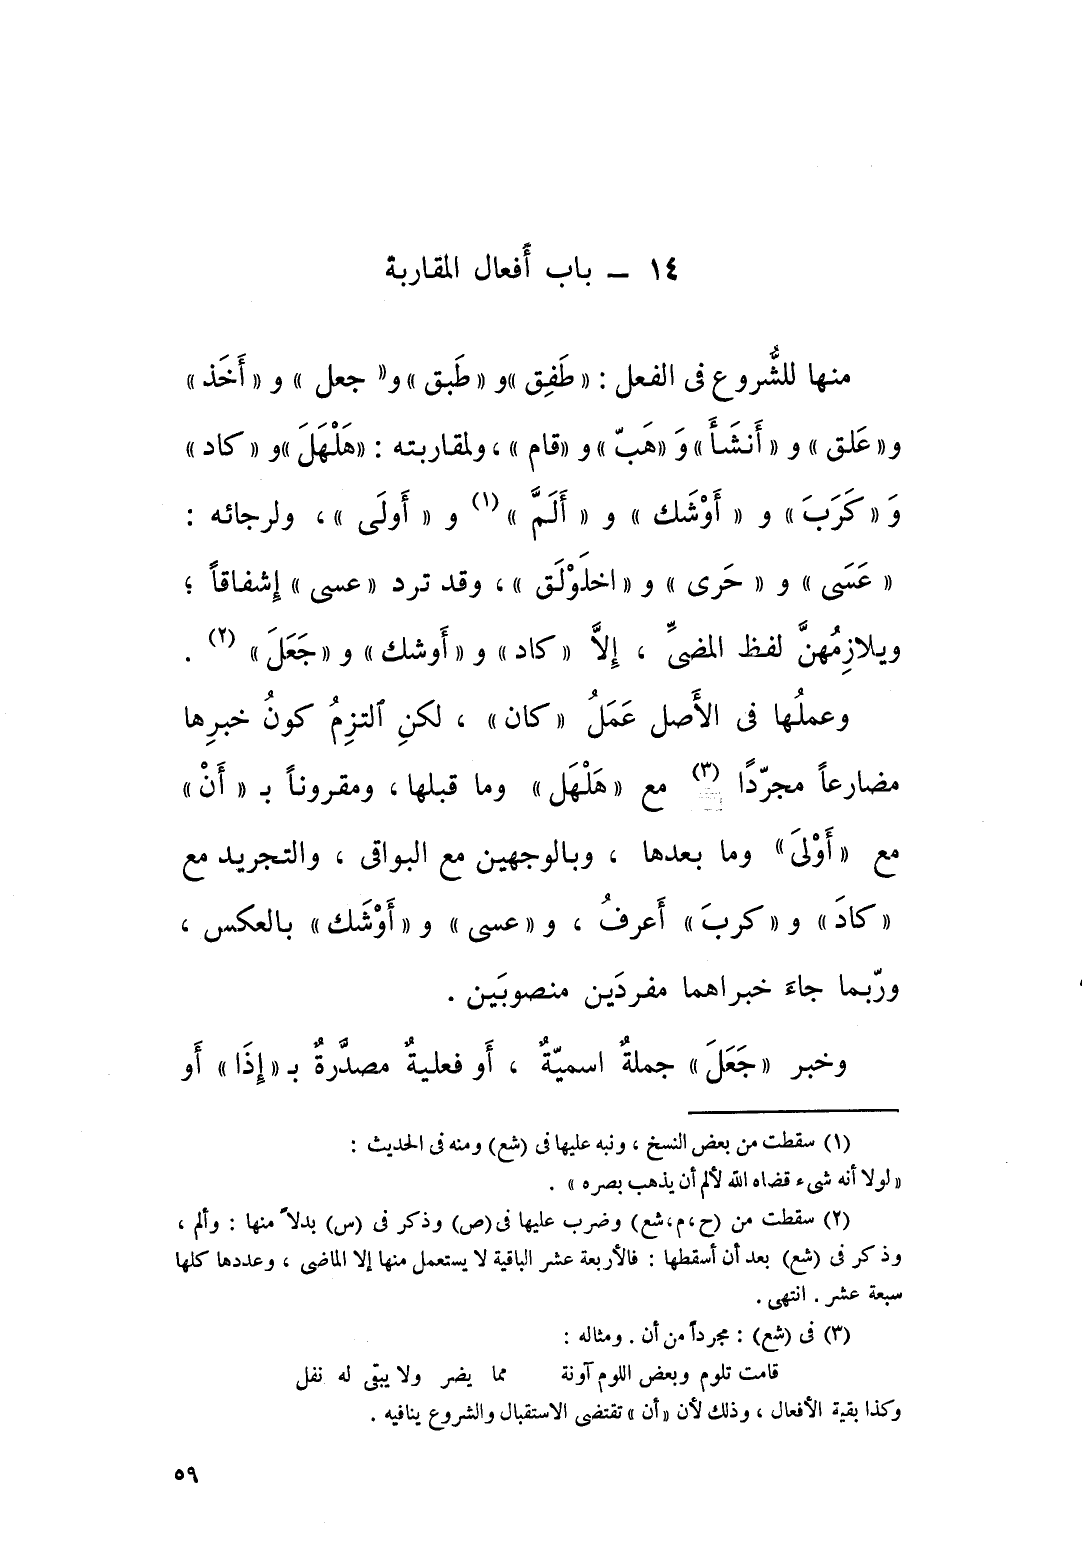 ١٤ — باب أَفعال المقاربة
منها للشُّروع فى الفعل : « طَفِق »و « طَبق »و« جعل » و « أَخَذ »
و« عَلق » و « أَنشَأَ »وَ «هَبّ »و «قام » ، ولمقاربته : «هَلْهَلَ »و « كاد »
وَ « كَرَبَ » و « أَوْشَك » و « أَلَمَّ » (١) و « أَولَى »، ولرجائه :
« عَسَى » و « حَرى » و « اخلَوْلَق »، وقد ترد « عسى » إِشفاقاً ؛
ويلازِمُهنَّ لفظ المضىِّ ، إِلاَّ « كاد » و « أَوشك » و « جَعَلَ » (٢) .
وعملُها فى الأَصل عَمَلُ « كان » ، لكنِ ٱلتزِمُ كونُ خبرِها
مضارعاً مجرّدًا (٣) مع « هَلْهَل » وما قبلها ، ومقروناً بـ « أَنْ »
مع « أَوْلىَ » وما بعدها ، وبالوجهين مع البواقى ، والتجريد مع
« كادَ » و « كربَ » أَعرفُ ، و « عسى » و « أَوْشَك » بالعكس ،
وربّما جاءَ خبراهما مفردَين منصوبَين .
وخبر « جَعَلَ » جملةٌ اسميّةٌ ، أَو فعليةٌ مصدَّرةٌ بـ « إِذَا » أَو
(١) سقطت من بعض النسخ ، ونبه عليها فى (شع) ومنه فى الحديث :
« لولا أنه شىء قضاه الله لألم أن يذهب بصره » .
(٢) سقطت من (ح،م،شع) وضرب عليها فى (ص) وذكر فى (س) بدلاً منها : وألم ،
وذكر فى (شع) بعد أن أسقطها : فالأربعة عشر الباقية لا يستعمل منها إلا الماضى ، وعددها كلها
سبعة عشر . انتهى .
(٣) فى (شع) : مجرداً من أن . ومثاله :
قامت تلوم وبعض اللوم آونة مما يضر ولا يبقى له نفل
وكذا بقية الأفعال ، وذلك لأن « أن » تقتضى الاستقبال والشروع ينافيه .
٥٩